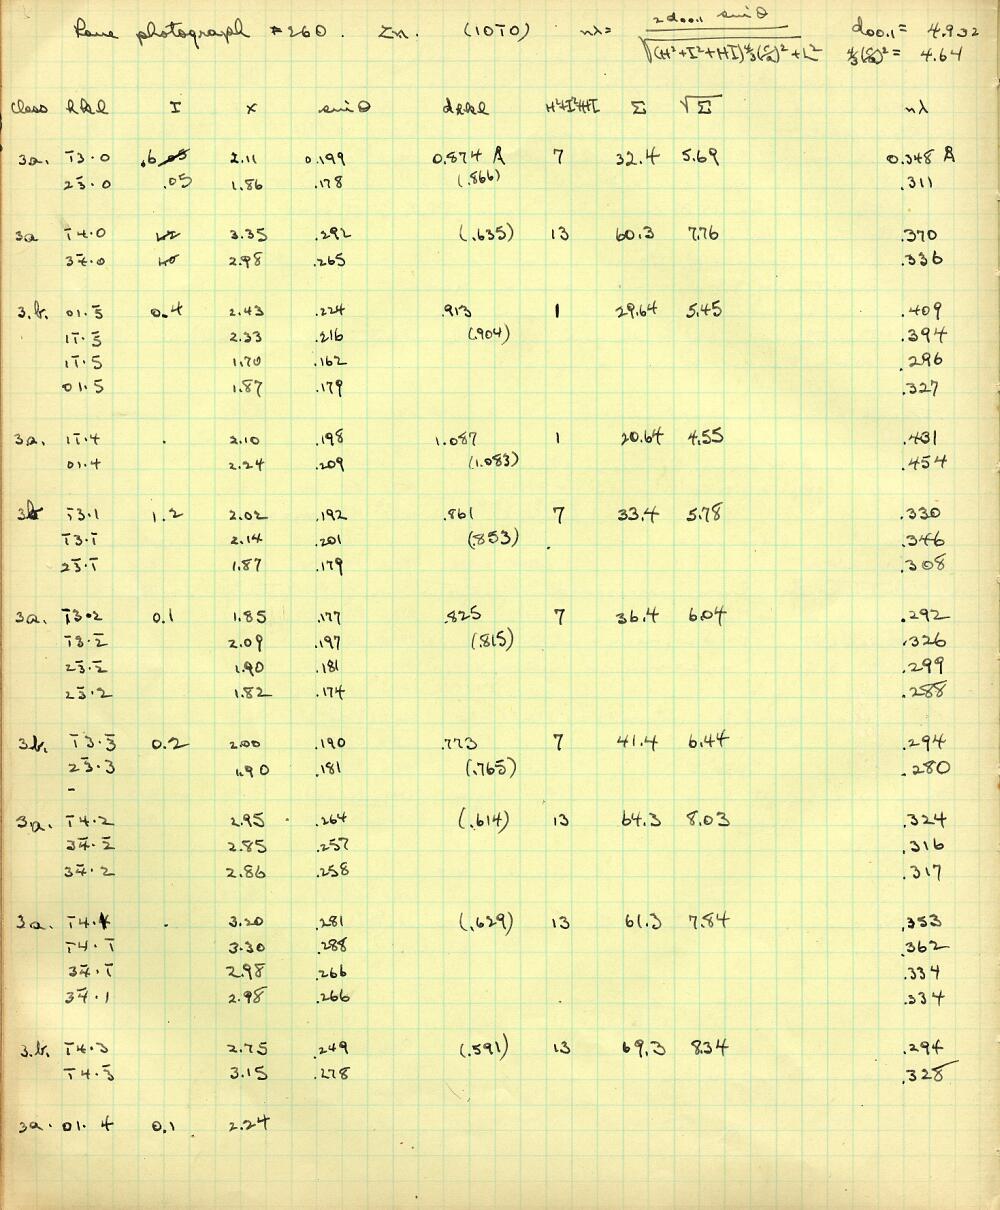 Laue photograph #260. Zn. (101̄0) nλ = 2d00.1 sin θ / √(H²+I²+HI)4/3(c/a)²+L² d00.1 = 4.932
4/3(c/a)² = 4.64
Class hkl I x sin θ dhkl H²+I²+HI Σ √Σ nλ
3a. 1̄3·0 .6 2.11 0.199 0.874 Å 7 32.4 5.69 0.348 Å
23̄·0 .05 1.86 .178 (.866) .311
3a 1̄4·0 3.35 .292 (.635) 13 60.3 7.76 .370
34̄·0 2.98 .265 .336
3.b. 01·5̄ 0.4 2.43 .224 .913 1 29.64 5.45 .409
11̄·5̄ 2.33 .216 (.904) .394
11̄·5 1.70 .162 .296
01·5 1.87 .179 .327
3a. 11̄·4 . 2.10 .198 1.087 1 20.64 4.55 .431
01·4 2.24 .209 (1.083) .454
3b 1̄3·1 1.2 2.02 .192 .861 7 33.4 5.78 .330
1̄3·1̄ 2.14 .201 (.853) .346
23̄·1̄ 1.87 .179 .308
3a. 1̄3·2 0.1 1.85 .177 .825 7 36.4 6.04 .292
1̄3·2̄ 2.09 .197 (.815) .326
23̄·2̄ 1.90 .181 .299
23̄·2 1.82 .174 .288
3b. 1̄3·3̄ 0.2 2.00 .190 .773 7 41.4 6.44 .294
23̄·3 1.90 .181 (.765) .280
-
3a. 1̄4·2 2.95 .264 (.614) 13 64.3 8.03 .324
34̄·2̄ 2.85 .257 .316
34̄·2 2.86 .258 .317
3a. 1̄4·1 . 3.20 .281 (.629) 13 61.3 7.84 .353
1̄4·1̄ 3.30 .288 .362
34̄·1̄ 2.98 .266 .334
34̄·1 2.98 .266 .334
3.b. 1̄4·3 2.75 .249 (.591) 13 69.3 8.34 .294
1̄4·3̄ 3.15 .278 .328
3a. 01·4 0.1 2.24